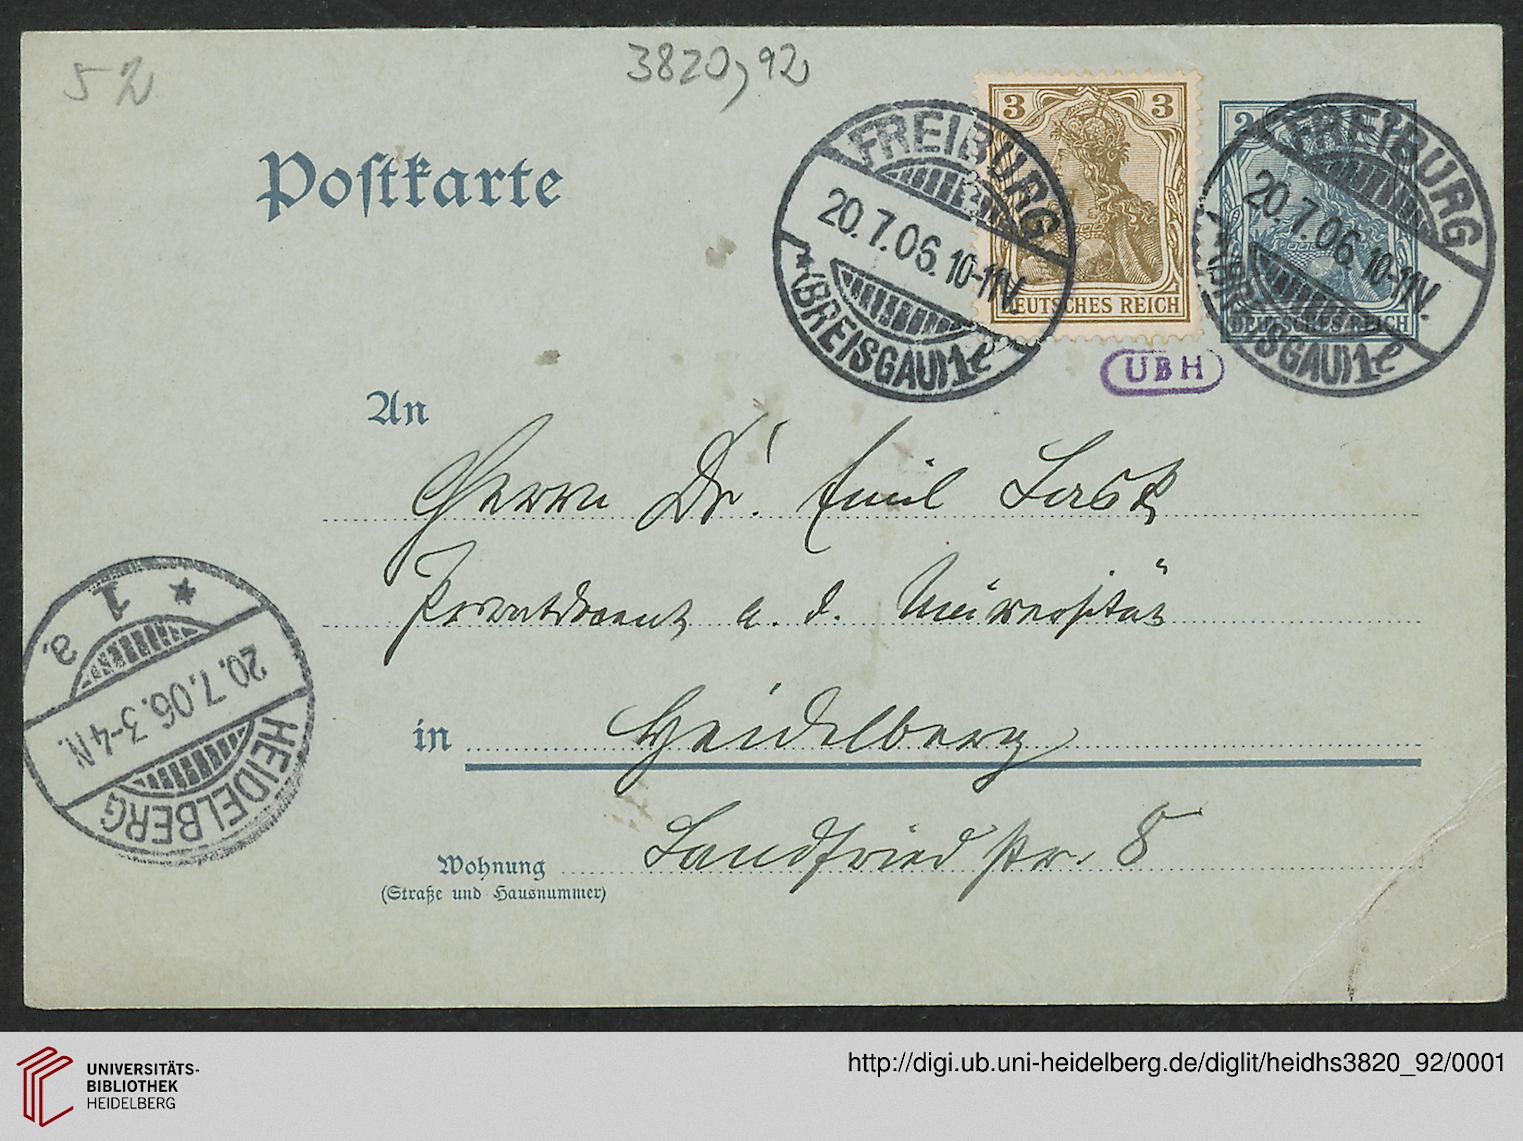 52
3820,92
Postkarte
3 3
DEUTSCHES REICH
FREIBURG
20.7.06.10-11V.
* (BREISGAU) 1 e
2
DEUTSCHES REICH
FREIBURG
20.7.06.10-11V.
* (BREISGAU) 1 e
UBH
An
Herrn Dr. Emil Lask
Privatdocent a. d. Universität
in Heidelberg
Landfriedstr. 8
Wohnung
(Straße und Hausnummer)
HEIDELBERG
20.7.06.3-4N.
* 1 a.
UNIVERSITÄTS-
BIBLIOTHEK
HEIDELBERG
http://digi.ub.uni-heidelberg.de/diglit/heidhs3820_92/0001